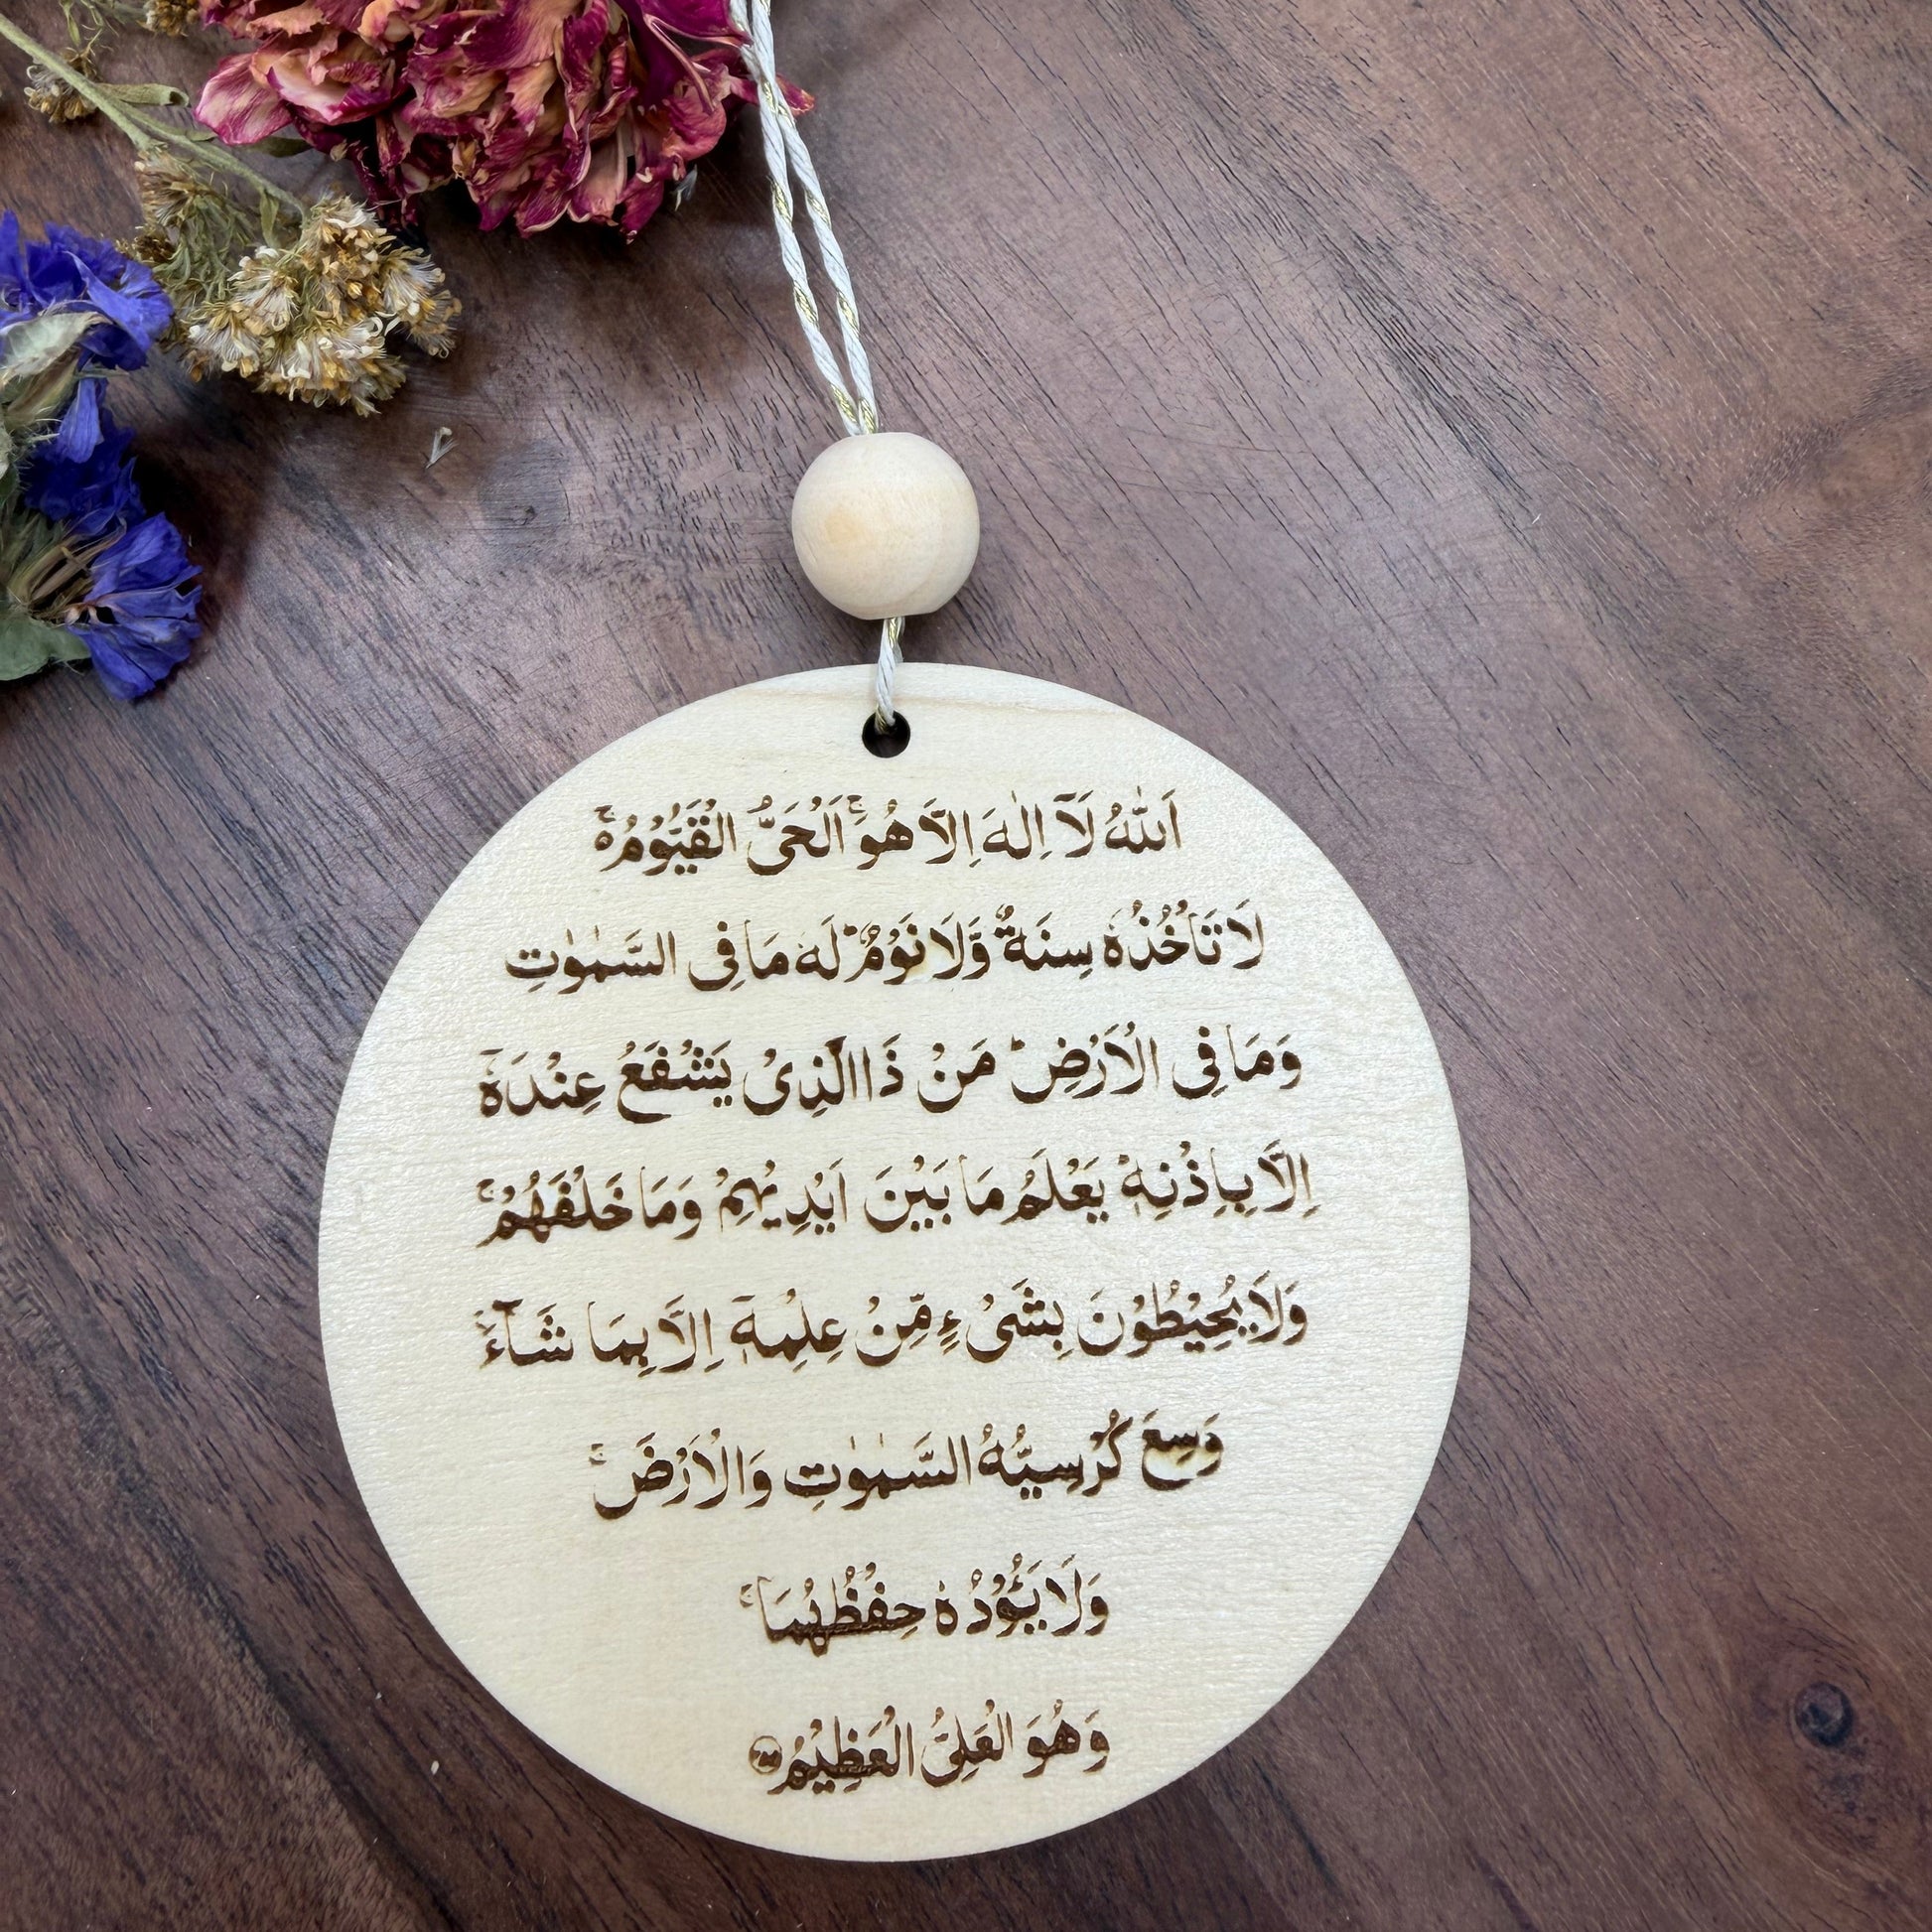 اَللّٰهُ لَاۤ اِلٰهَ اِلَّا هُوَۚ اَلْحَیُّ الْقَیُّوْمُ ەۚ
لَا تَاْخُذُهٗ سِنَةٌ وَّلَا نَوْمٌؕ لَهٗ مَا فِی السَّمٰوٰتِ
وَمَا فِی الْاَرْضِؕ مَنْ ذَا الَّذِیْ یَشْفَعُ عِنْدَهٗۤ
اِلَّا بِاِذْنِهٖؕ یَعْلَمُ مَا بَیْنَ اَیْدِیْهِمْ وَمَا خَلْفَهُمْۚ
وَلَا یُحِیْطُوْنَ بِشَیْءٍ مِّنْ عِلْمِهٖۤ اِلَّا بِمَا شَآءَۚ
وَسِعَ كُرْسِیُّهُ السَّمٰوٰتِ وَالْاَرْضَۚ
وَلَا یَـُٔوْدُهٗ حِفْظُهُمَاۚ
وَهُوَ الْعَلِیُّ الْعَظِیْمُ